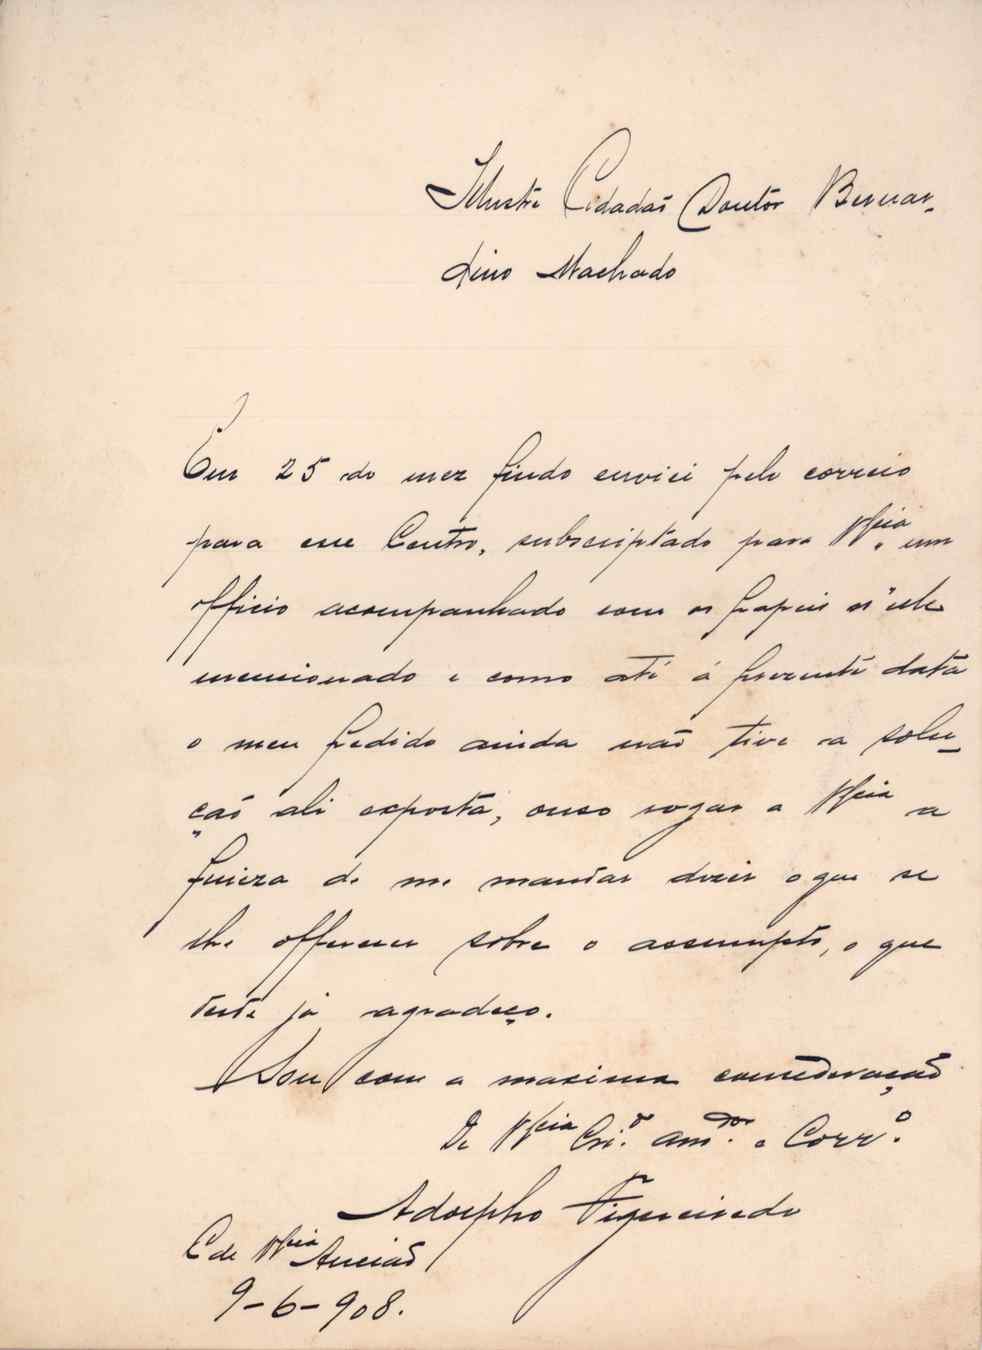 Illustre Cidadão Doutor Bernar-
dino Machado
Em 25 do mez findo enviei pelo correio
para esse Centro, subscriptado para V.ª Ex.cia um
officio acompanhado com os papeis n'elle
mencionado e como até á presente data
o meu pedido ainda não tive a solu-
ção ali exposta, ouso rogar a V.ª Ex.cia a
fineza de me mandar dizer o que se
lhe offerecer sobre o assumpto, o que
desde já agradeço.
Sou com a maxima consideração
De V.ª Ex.cia Cri.º am.dor e Corr.º
Adolpho Figueiredo
C de Ancião
9-6-908.